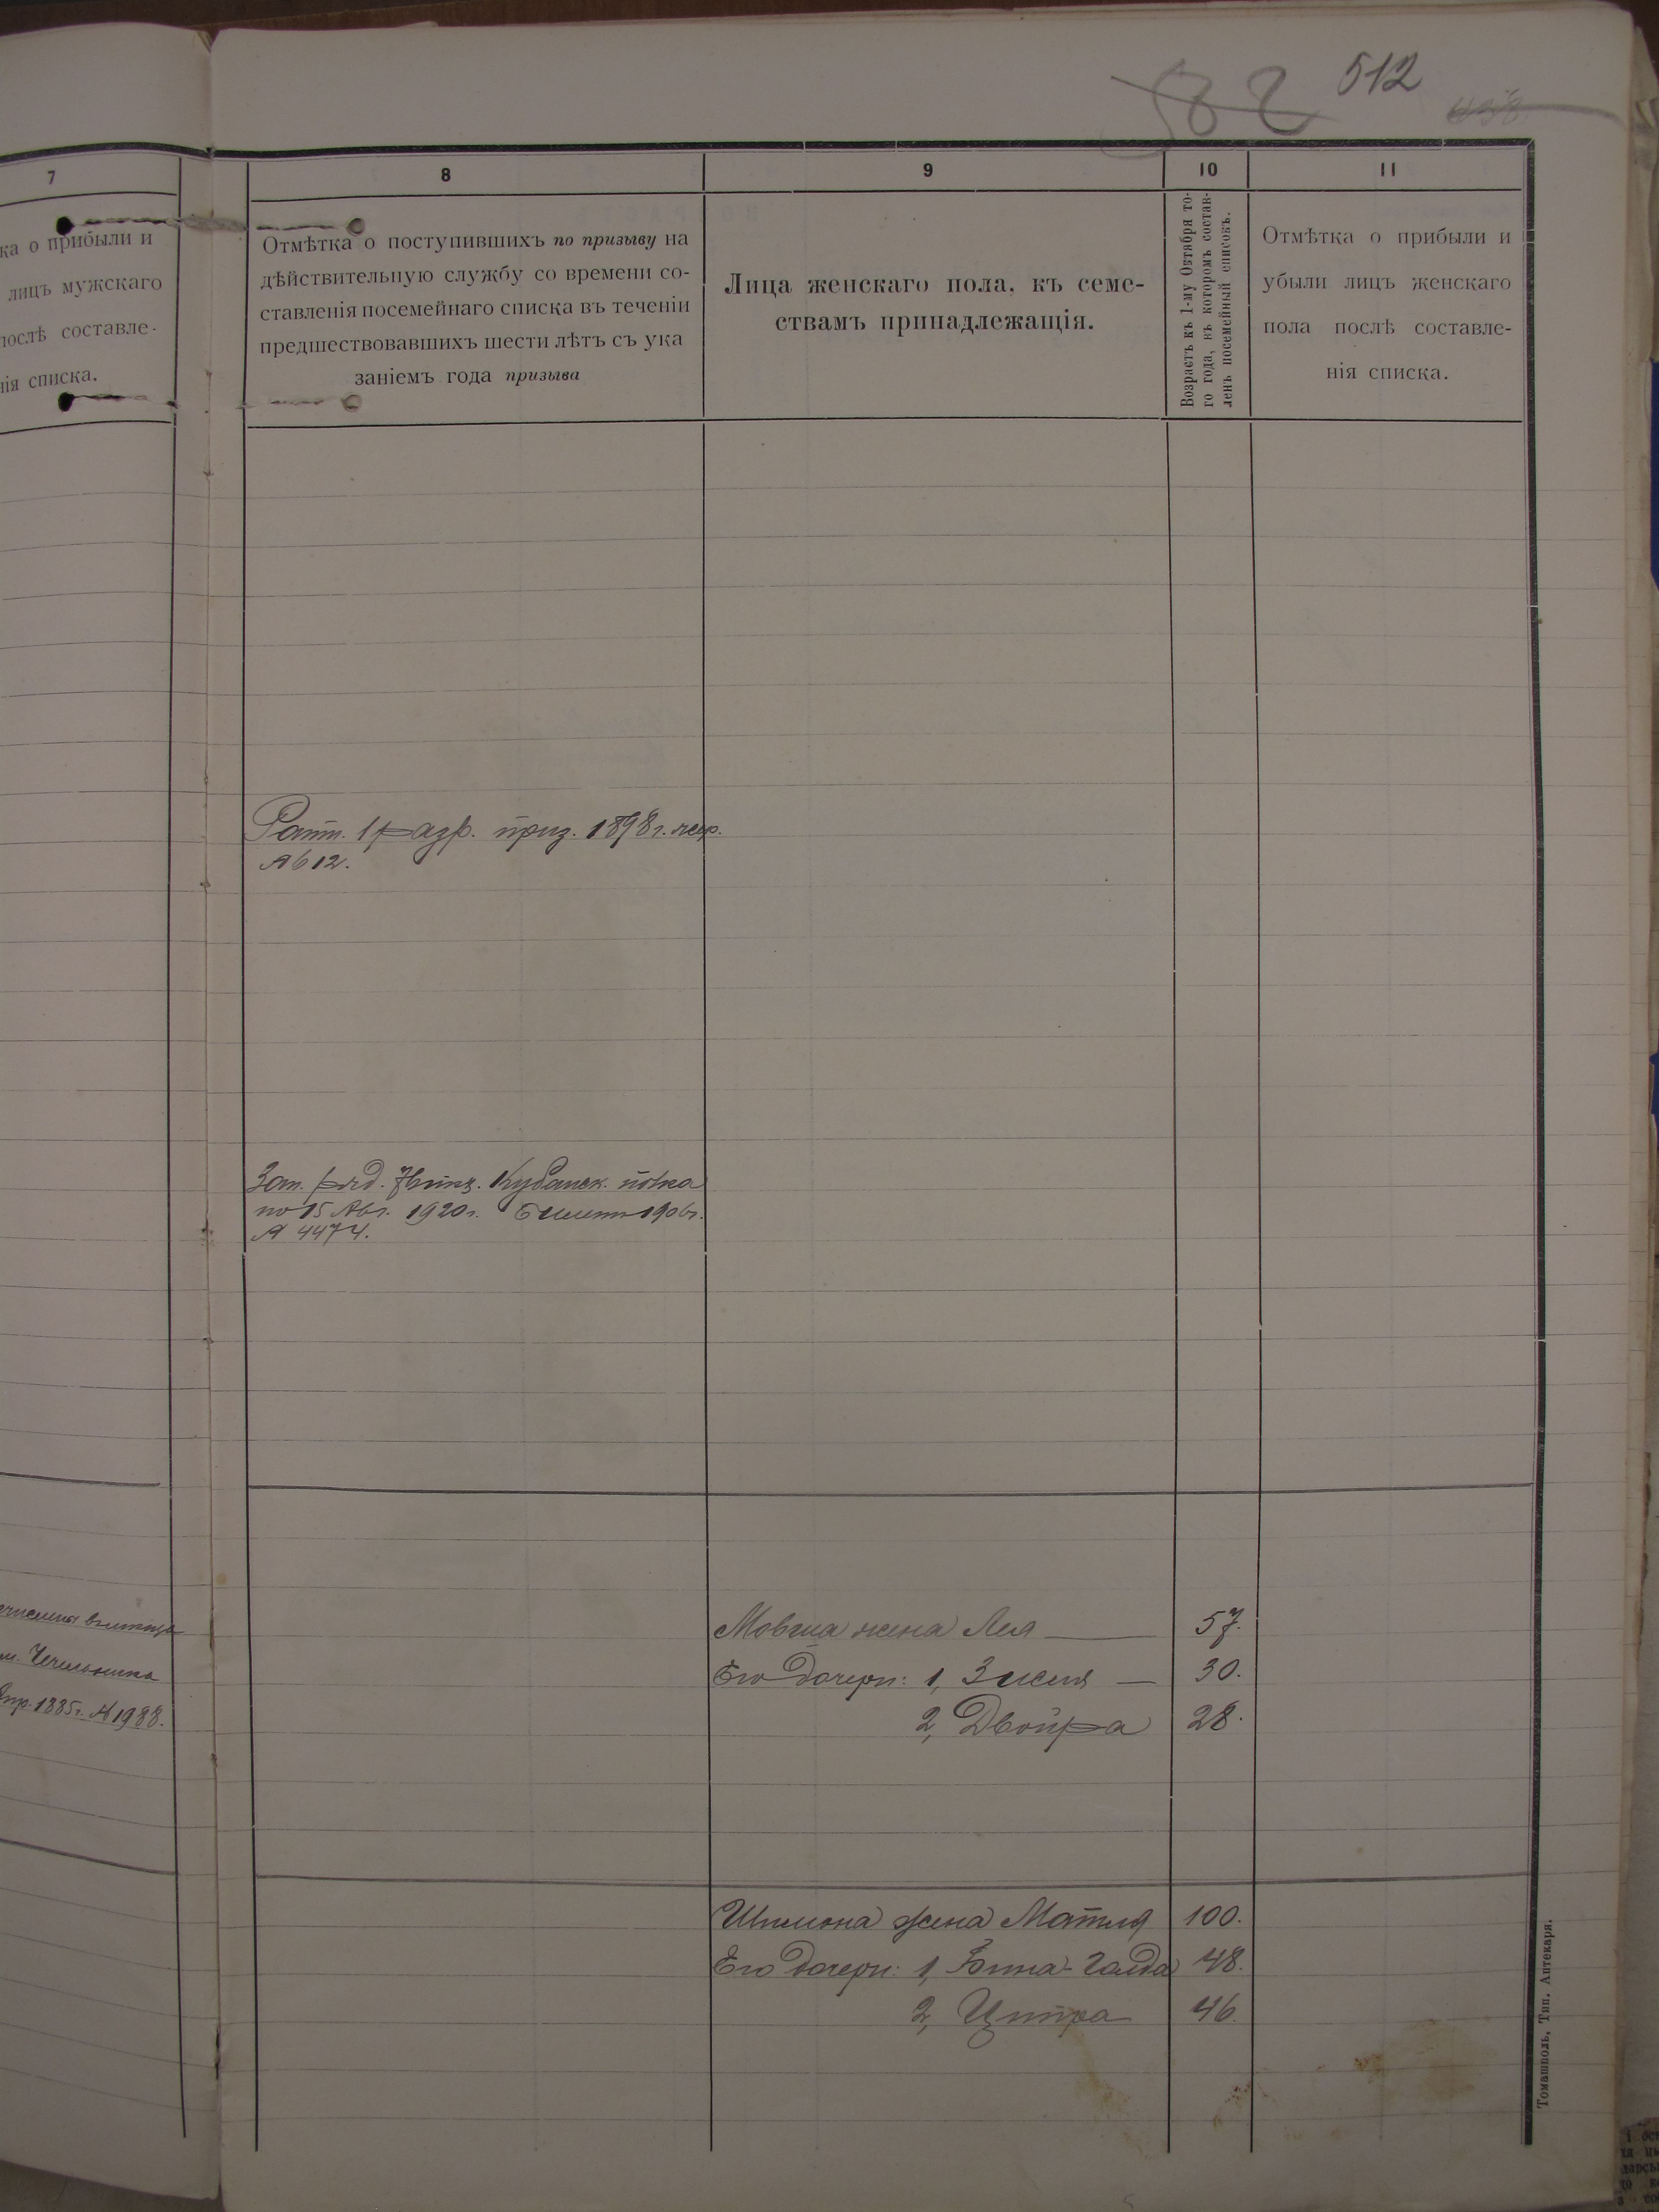 512
82
7
ка о прибыли и
лицъ мужскаго
послѣ составле-
нія списка.
8
Отмѣтка о поступившихъ по призыву на
дѣйствительную службу со времени со-
ставленія посемейнаго списка въ теченіи
предшествовавшихъ шести лѣтъ съ ука
заніемъ года призыва
9
Лица женскаго пола, къ семе-
ствамъ принадлежащія.
10
Возрастъ къ 1-му Октября то-
го года, въ которомъ состав-
ленъ посемейный списокъ.
11
Отмѣтка о прибыли и
убыли лицъ женскаго
пола послѣ составле-
нія списка.
Ратн. 1 разр. приз. 1898 г. жер.
№ 612.
Зап. ряд. Кубанск. полка
по 15 Авг. 1920 г. Билетъ 1906 г.
№ 4474.
м. Чечельника
1885 г. № 1988.
Мовша жена Лея 57.
Его дочери: 1, 30.
2, Двойра 28.
Шимона жена Матля 100.
Его дочери: 1, Бина-Голда 48.
2, Цитра 46.
Томашполь, Тип. Аптекаря.